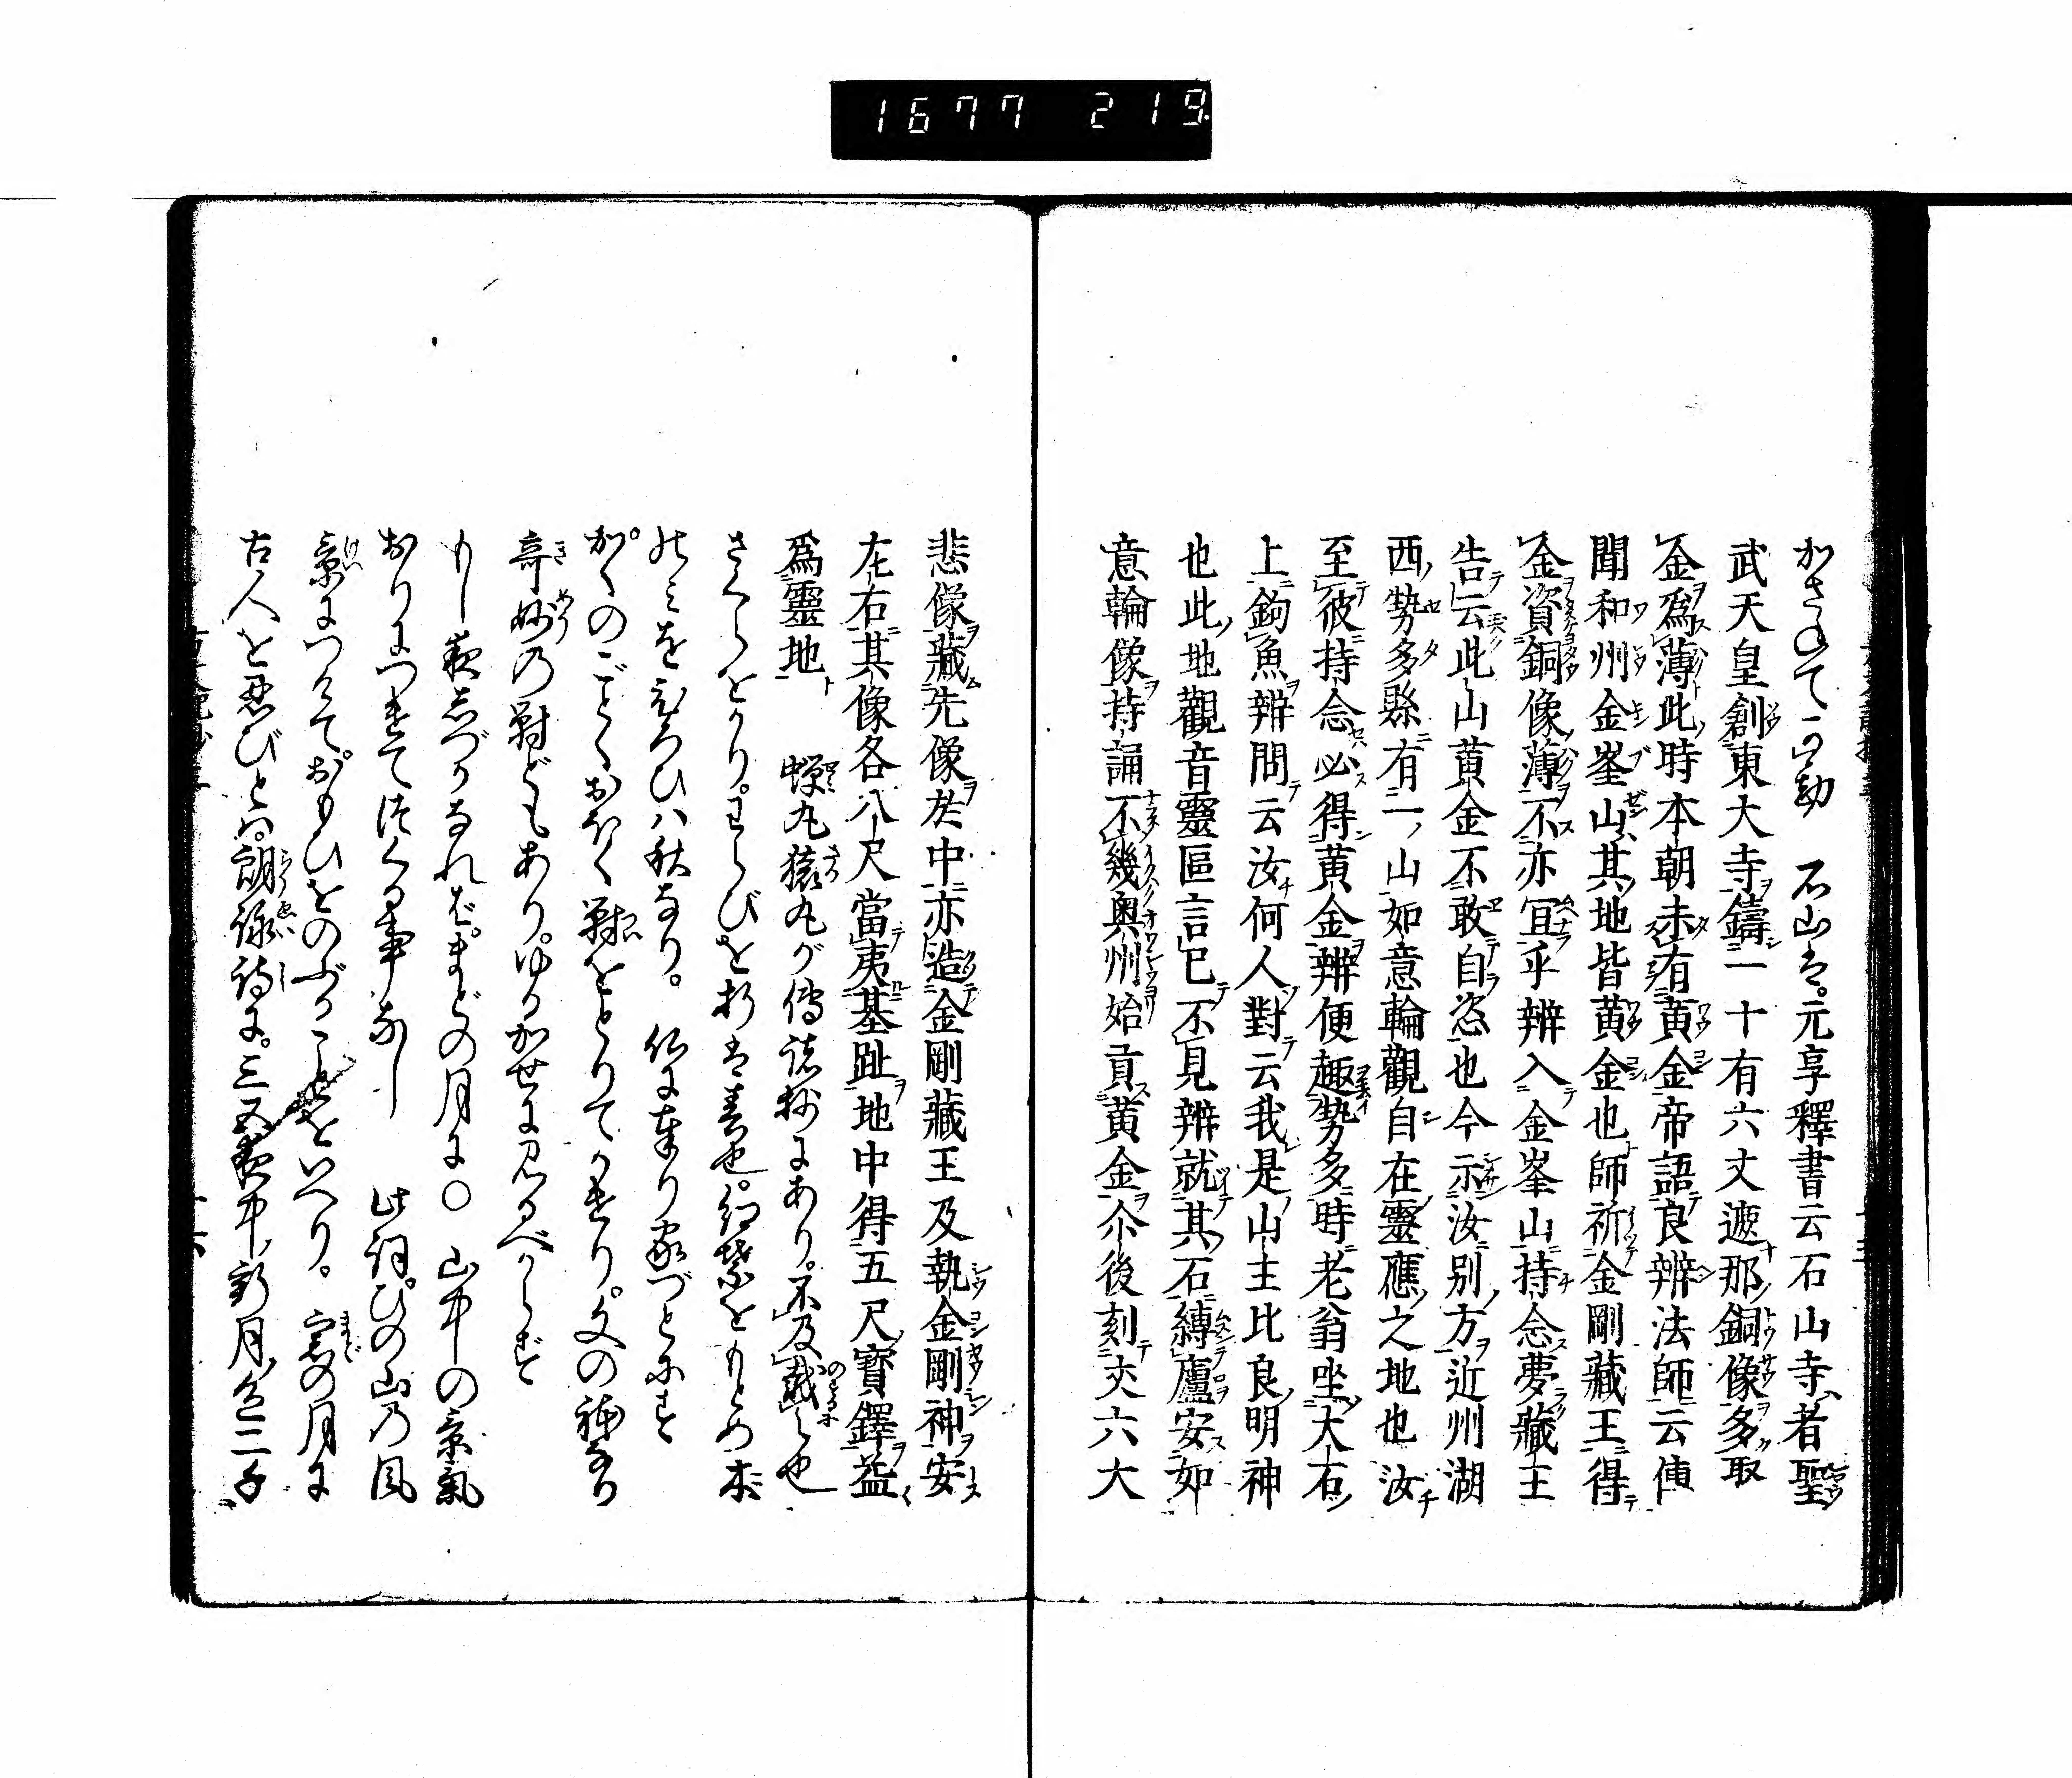 1677 219.
かさねて可勘 石山は。元亨釋書云石山寺者聖
武天皇創東大寺鑄一十有六丈遮那銅像多取
金爲薄此時本朝未有黄金帝語良辨法師云傳
聞和州金峯山其地皆黄金也師祈金剛藏王得
金資銅像薄不亦冝乎辨入金峯山持念夢藏王
告云此山黄金不敢自恣也今示汝別方近州湖
西勢多縣有一山如意輪觀自在靈應之地也汝
至彼持念必得黄金辨便趣勢多時老翁坐大石
上鉤魚辨問云汝何人對云我是山主比良明神
也此地觀音靈區言已不見辨就其石縛廬安如
意輪像持誦不幾奥州始貢黄金尒後刻丈六大
悲像藏先像於中亦造金剛藏王及執金剛神安
左右其像各八尺當夷基趾地中得五尺寶鐸益
爲靈地 蟬丸猿丸が傳諸抄にあり。不及戴之也
さくらをかり。わらびを折は春也。紅葉をもとめ木
のミをひろひハ秋なり。 仏に奉り家づとにす
かくのごとくおほく對をとりてかけり。文の神なり
奇妙の對どもあり。ゆるかせに見るべからず
もし夜しづかなれば。まどの月に〇 山中の景氣
おりにつけてつくる事なし 此詞。ひの山の風
景につけて。おもひをのぶることをいへり。 窓の月に
古人を忍びとハ。朗詠詩に。三五夜中新月色二千